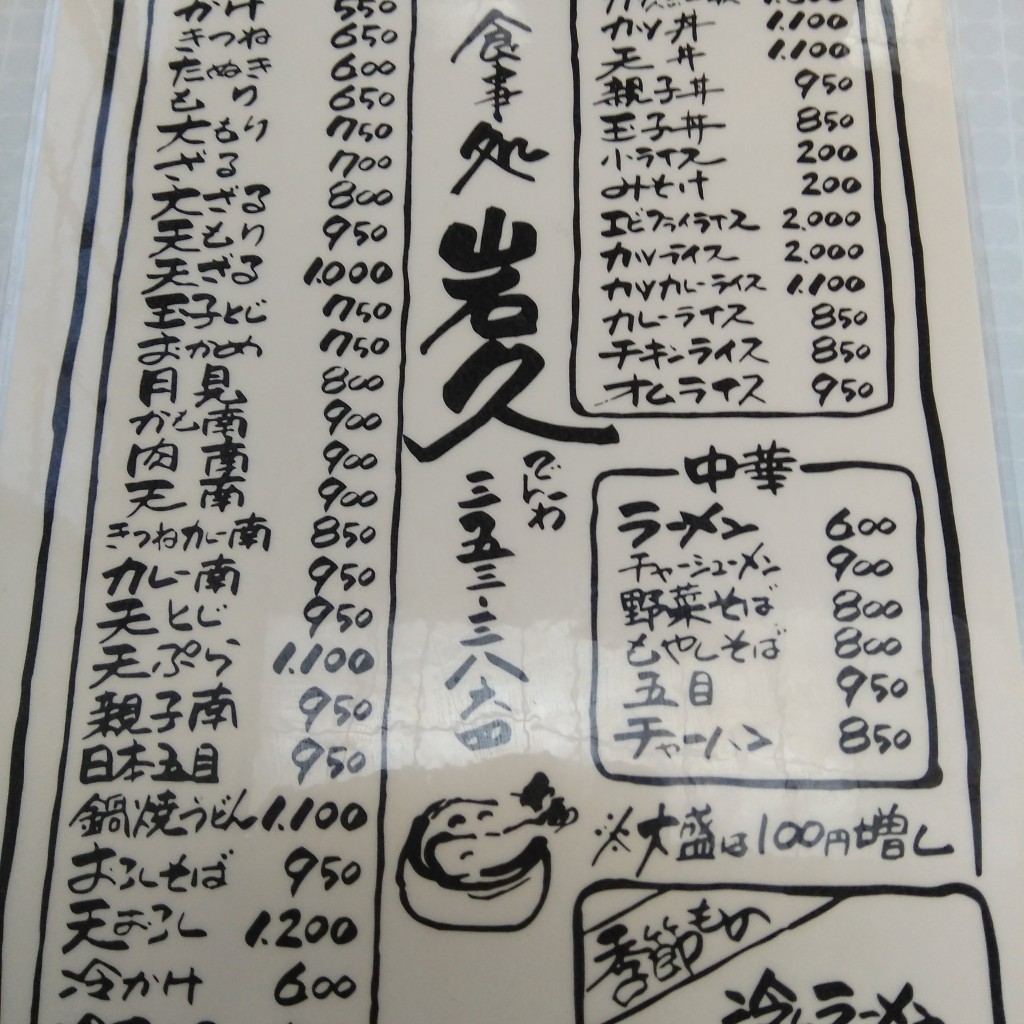 かけ 550
きつね 650
たぬき 600
もり 650
大もり 750
ざる 700
大ざる 800
天もり 950
天ざる 1.000
玉子とじ 750
おかめ 750
月見 800
かも南 900
肉南 900
天南 900
きつねカレー南 850
カレー南 950
天とじ 950
天ぷら 1.100
親子南 950
日本五目 950
鍋焼うどん 1.100
おろしそば 950
天おろし 1.200
冷かけ 600
食事処
岩久
でんわ
三五三・三八六四
カツ丼 1.100
天丼 1.100
親子丼 950
玉子丼 850
小ライス 200
みそ汁 200
エビフライライス 2.000
カツライス 2.000
カツカレーライス 1.100
カレーライス 850
チキンライス 850
オムライス 950
中華
ラーメン 600
チャーシューメン 900
野菜そば 800
もやしそば 800
五目 950
チャーハン 850
※大盛は100円増し
季節もの
冷しラーメン